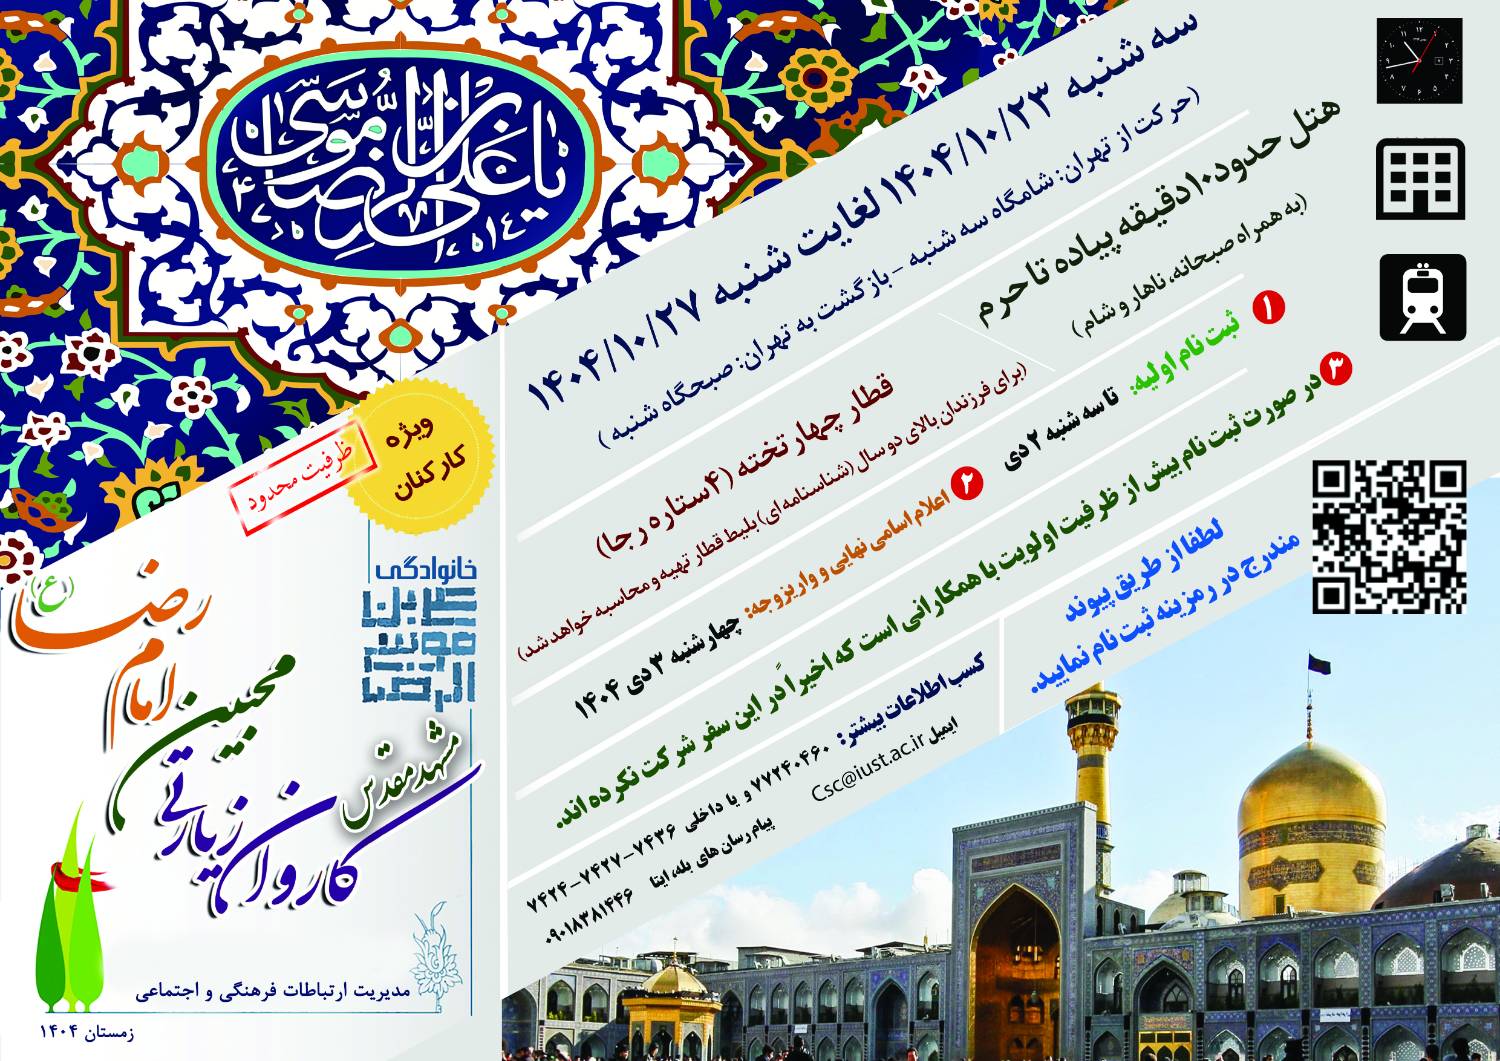 یا علی بن موسی الرضا
سه شنبه ۱۴۰۴/۱۰/۲۳ لغایت شنبه ۱۴۰۴/۱۰/۲۷
(حرکت از تهران: شامگاه سه شنبه - بازگشت به تهران: صبحگاه شنبه)
هتل حدود ۱۰ دقیقه پیاده تا حرم
(به همراه صبحانه، ناهار و شام)
قطار چهار تخته (۴ ستاره رجا)
(برای فرزندان بالای دو سال (شناسنامه ای) بلیط قطار تهیه و محاسبه خواهد شد)
۱ ثبت نام اولیه: تا سه شنبه ۲ دی
۲ اعلام اسامی نهایی و واریز وجه: چهارشنبه ۳ دی ۱۴۰۴
۳ در صورت ثبت نام بیش از ظرفیت اولویت با همکارانی است که اخیراً در این سفر شرکت نکرده اند.
لطفا از طریق پیوند
مندرج در رمزینه ثبت نام نمایید.
کسب اطلاعات بیشتر: ۷۷۲۴۰۴۶۰ و یا داخلی ۷۴۳۶-۷۴۲۷-۷۴۲۴
ایمیل Csc@iust.ac.ir
پیام رسان های بله، ایتا ۰۹۰۱۸۳۸۱۴۴۶
ویژه
کارکنان
ظرفیت محدود
خانوادگی
علی بن
موسی
الرضا
امام رضا (ع)
محبین
کاروان زیارتی
مشهد مقدس
مدیریت ارتباطات فرهنگی و اجتماعی
زمستان ۱۴۰۴